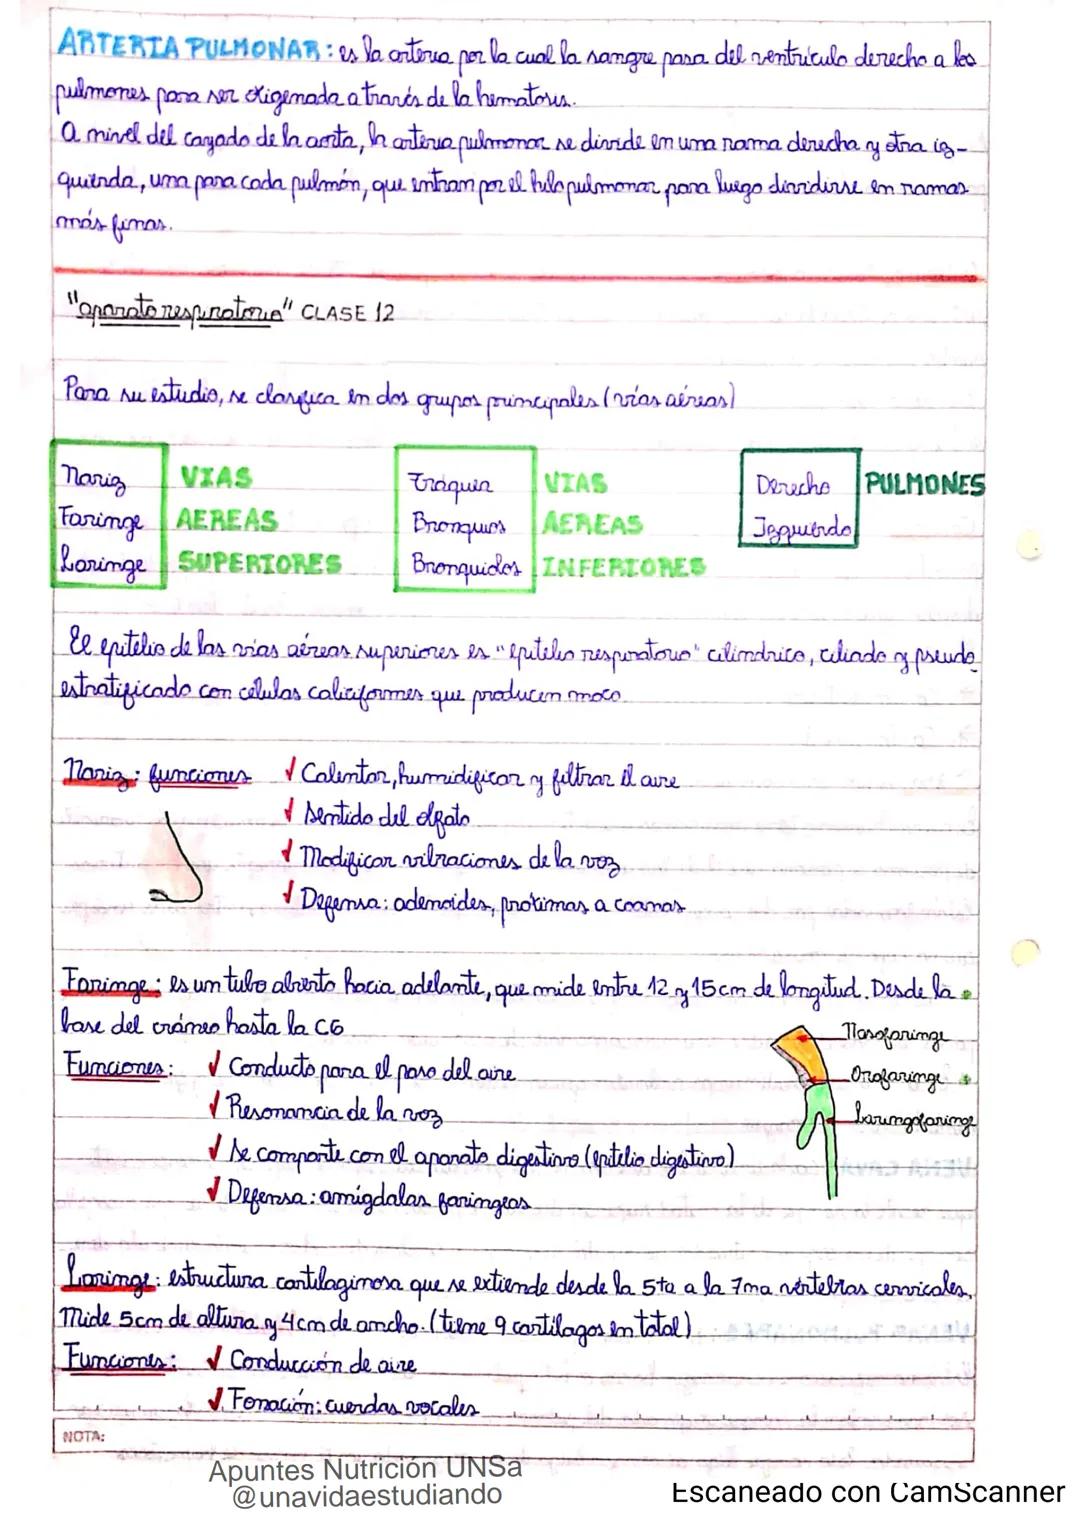 ARTERIA PULMONAR: es la arteria por la cual la sangre pasa del ventrículo derecho a los
pulmones para ser oxigenada a través de la hematosis.
A nivel del cayado de la aorta, la arteria pulmonar se divide en una rama derecha y otra iz-
quierda, una para cada pulmón, que entran por el hilo pulmonar para luego dividirse en ramas
más finas.
"aparato respiratorio" CLASE 12
Para su estudio, se clasifica en dos grupos principales (vías aéreas)
Nariz
Faringe
Laringe
VIAS
AEREAS
SUPERIORES
Tráquea
Bronquios
Bronquidos
VIAS
AEREAS
INFERIORES
Derecho
Izquierdo
PULMONES
El epitelio de las vías aéreas superiores es "epitelio respiratorio" cilíndrico, ciliado y pseudo
estratificado con células caliciformes que producen moco.
Nariz: funciones
✓ Calentar, humidificar y filtrar el aire
✓ Sentido del olfato
✓ Modificar vibraciones de la voz
✓ Defensa: adenoides, próximas a coanas
Faringe: es un tubo abierto hacia adelante, que mide entre 12 y 15cm de longitud. Desde la
base del cráneo hasta la C6
Funciones:
✓ Conducto para el paso del aire
✓ Resonancia de la voz
✓ Se comparte con el aparato digestivo (epitelio digestivo)
✓ Defensa: amígdalas faríngeas
Nasofaringe
Orofaringe
Laringofaringe
Laringe: estructura cartilaginosa que se extiende desde la 5ta a la 7ma vértebras cervicales.
Mide 5cm de altura y 4cm de ancho. (tiene 9 cartílagos en total)
Funciones:
✓ Conducción de aire
✓ Fonación: cuerdas vocales
NOTA:
Apuntes Nutrición UNSa
@unavidaestudiando
Escaneado con CamScanner